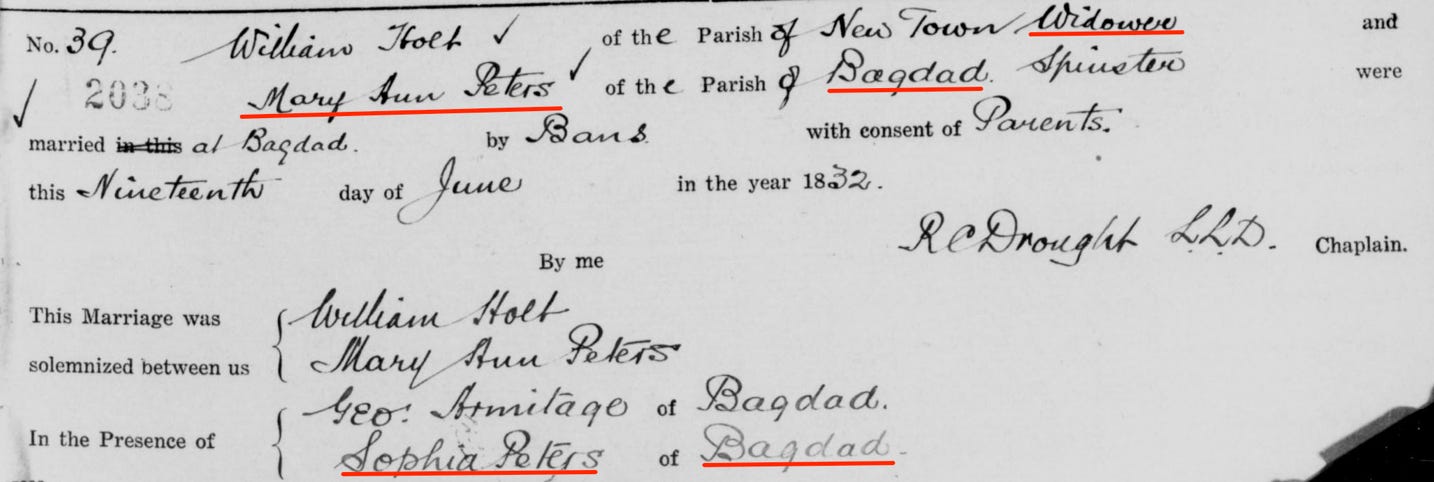 No. 39. William Holt ✓ of the Parish of New Town Widower and
✓ 2038 Mary Ann Peters ✓ of the Parish of Bagdad. Spinster were
married in this at Bagdad. by Bans with consent of Parents.
this Nineteenth day of June in the year 1832.
R C Drought L.L.D. Chaplain.
By me
This Marriage was William Holt
solemnized between us Mary Ann Peters
Geo: Armitage of Bagdad.
In the Presence of
Sophia Peters of Bagdad.